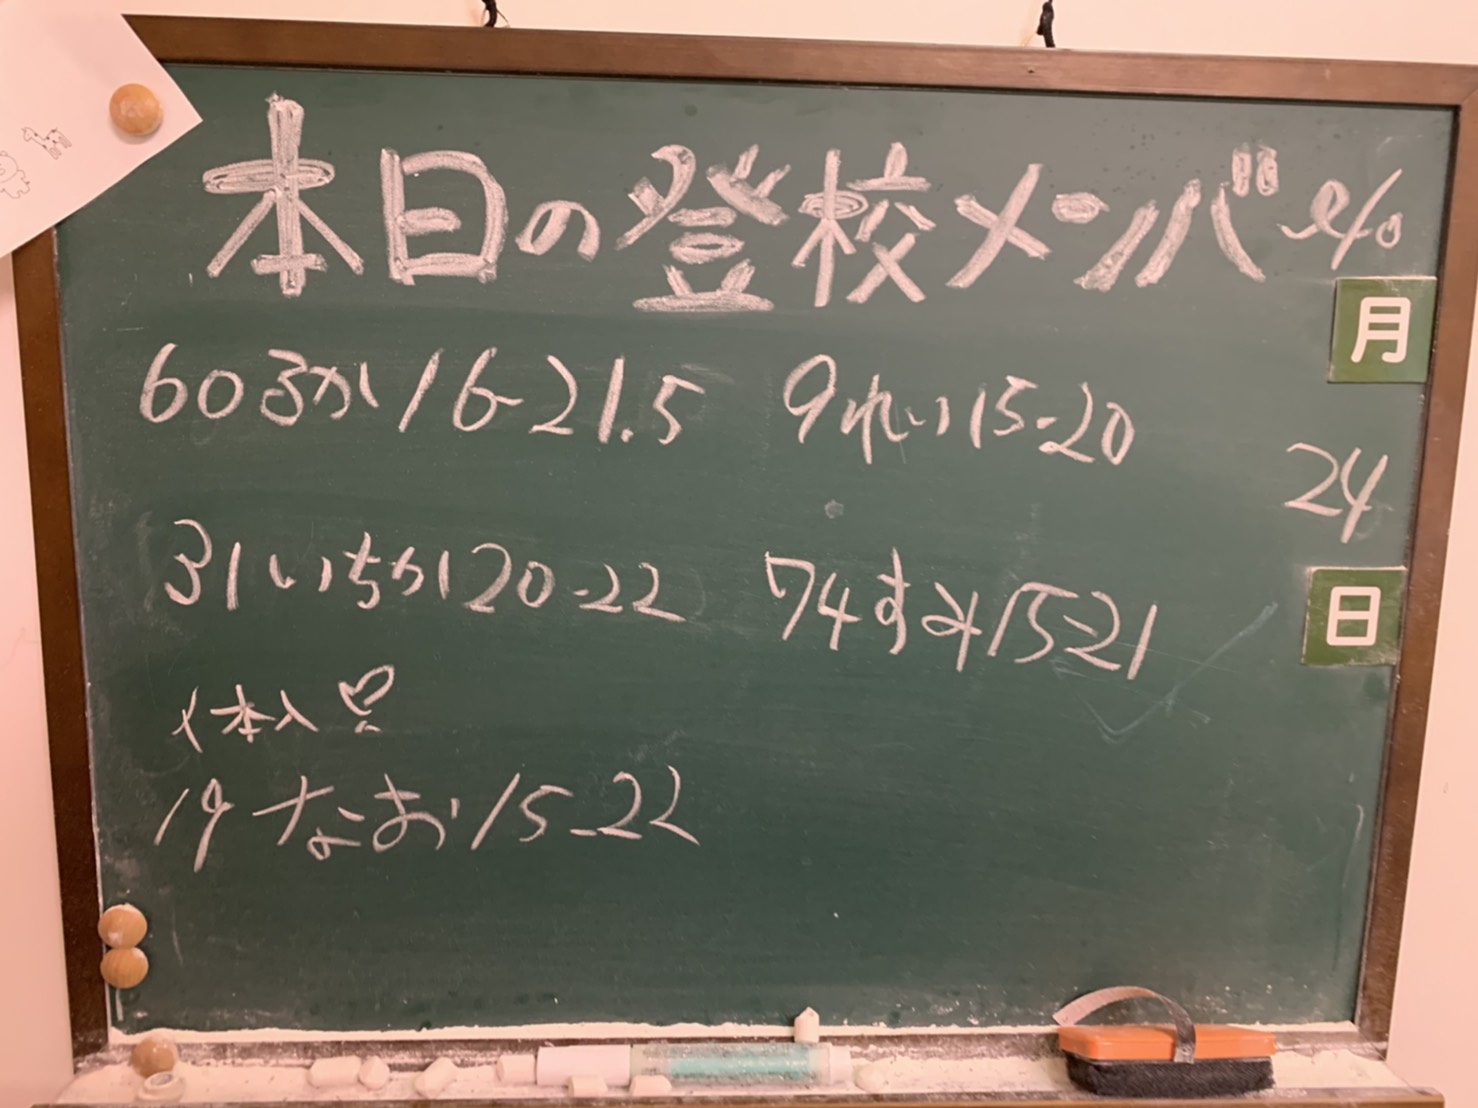 本日の登校メンバー
月
24
日
60るか16-21.5
9れい15-20
31いちか20-22
74すみ15-21
体入
19なお15-22